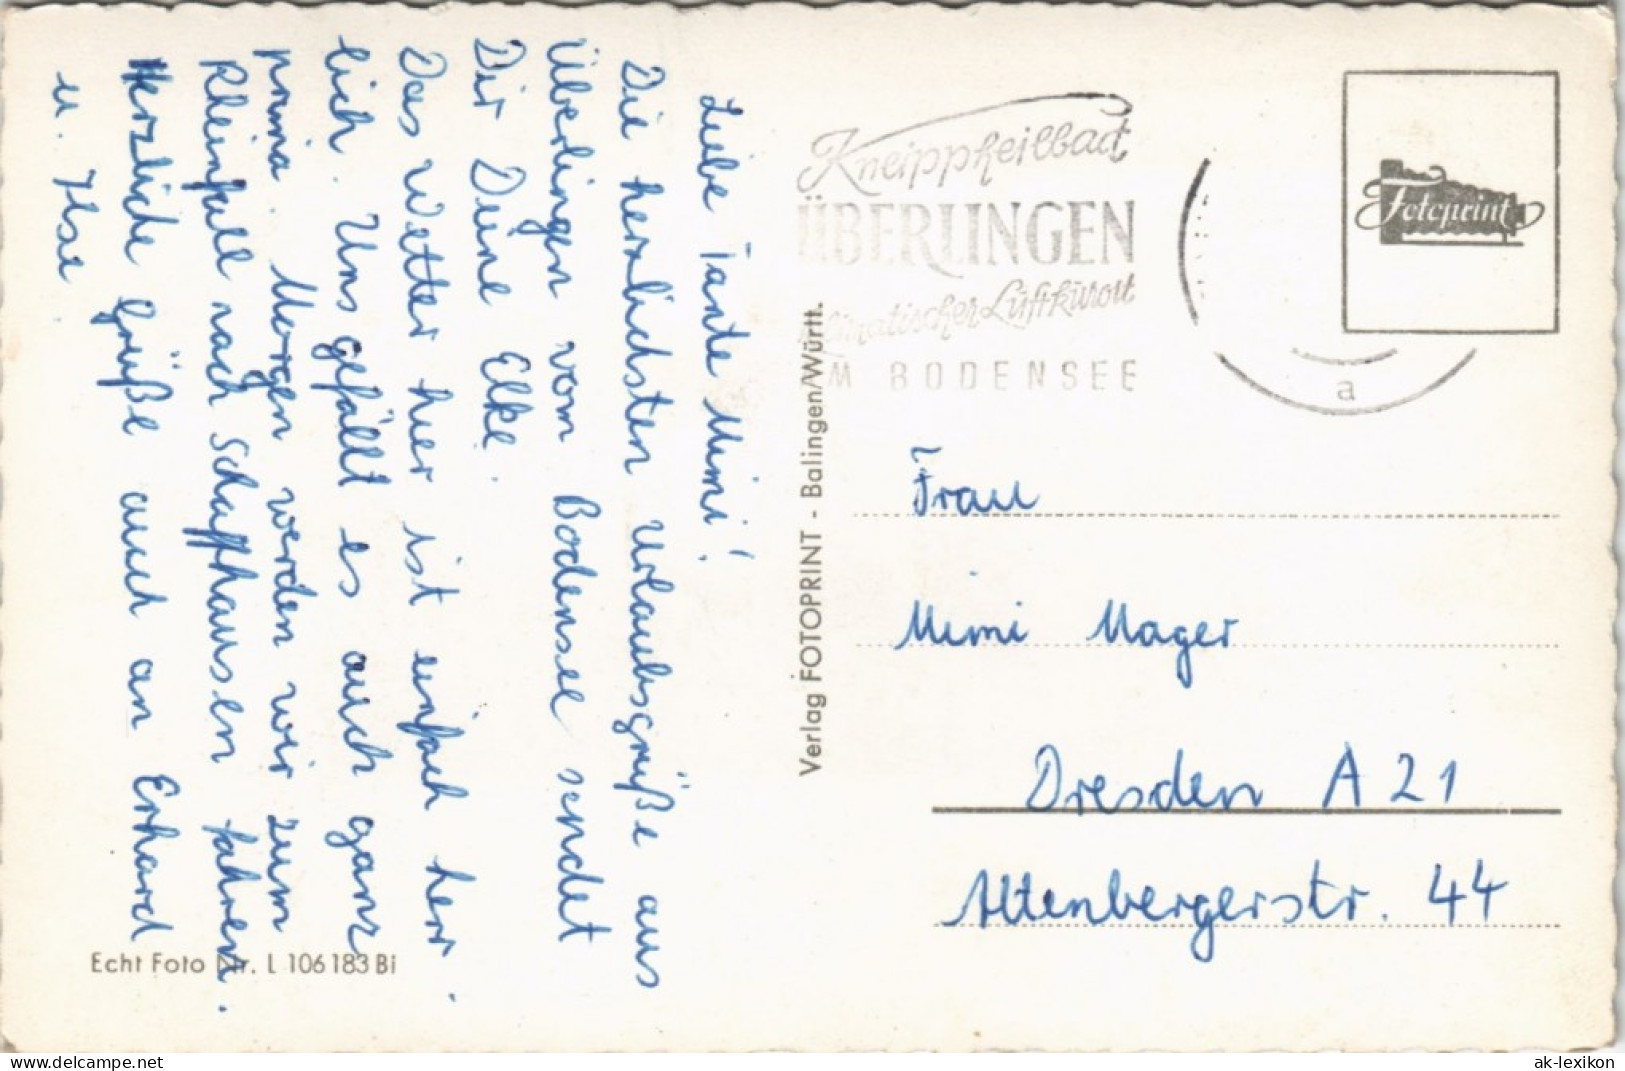 Liebe Tante Mimi!
Die herrlichsten Urlaubsgrüße aus
Überlingen vom Bodensee sendet
Dir Deine Elke.
Das Wetter hier ist einfach herr-
lich. Uns gefällt es auch ganz
prima. Morgen werden wir zum
Rheinfall nach Schaffhausen fahren.
Herzliche Grüße auch an Erhard
u. Ilse
Echt Foto Nr. L 106183 Bi
Verlag FOTOPRINT - Balingen/Württ.
Kneippheilbad
ÜBERLINGEN
Klimatischer Luftkurort
M BODENSEE
a
Fotoprint
Frau
Mimi Mager
Dresden A 21
Altenbergerstr. 44
www.delcampe.net
ak-lexikon